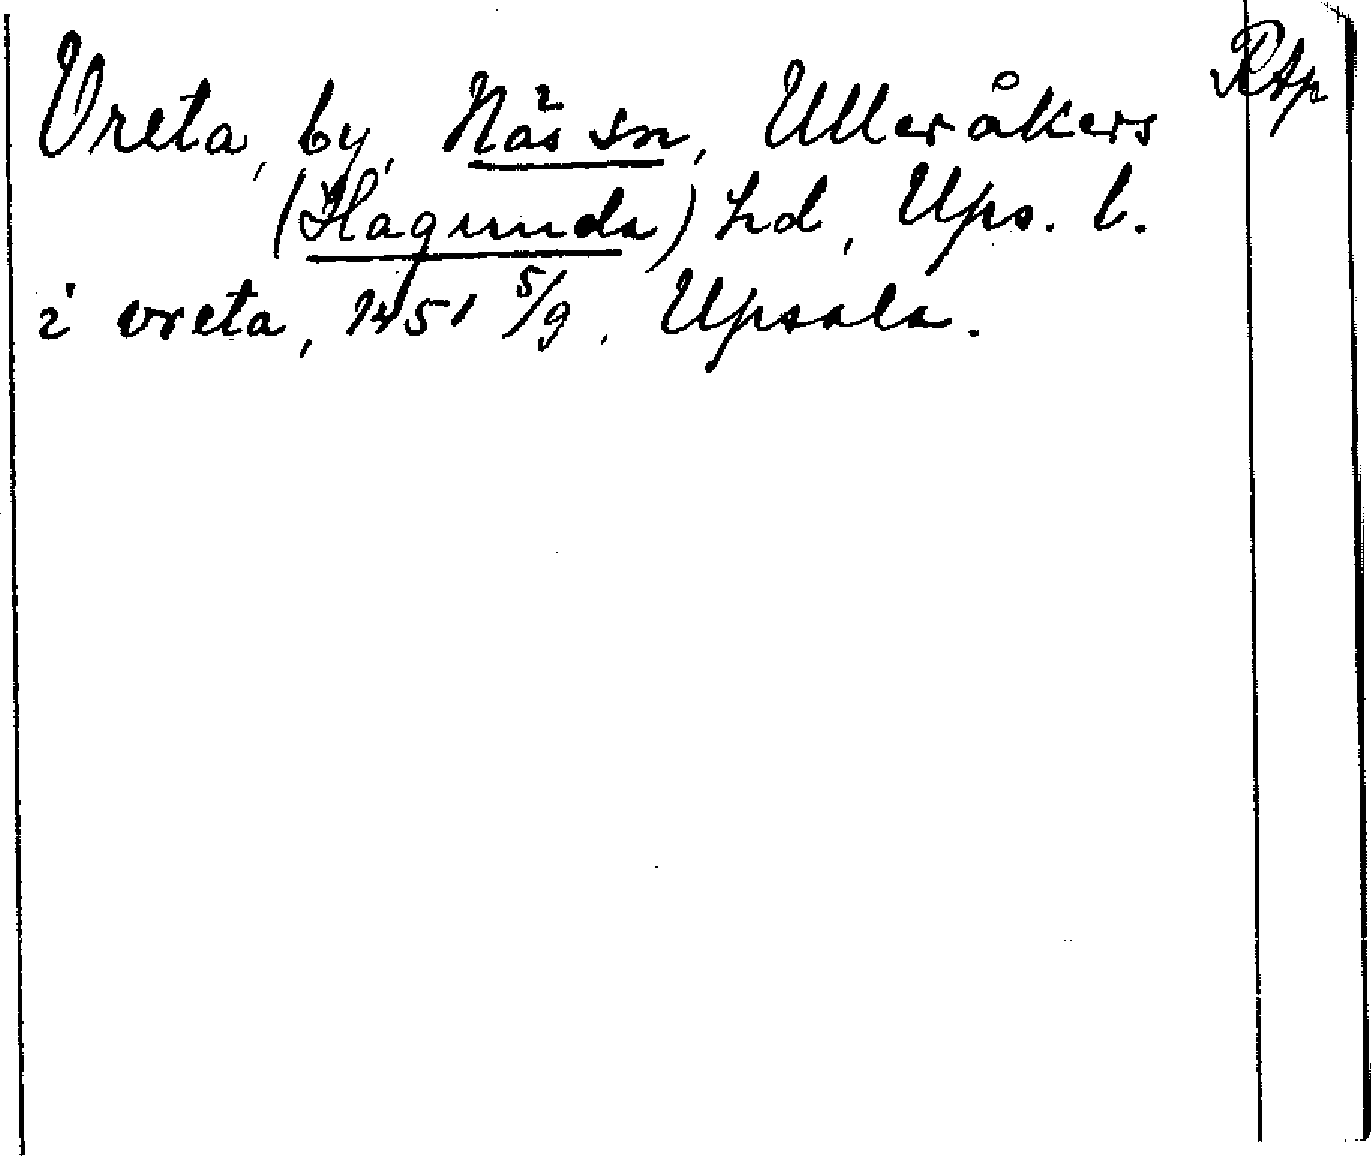 Vreta, by, Näs sn, Ulleråkers RAp
(Hagunda) hd, Ups. l.
i vreta, 1451 5/9. Upsala.